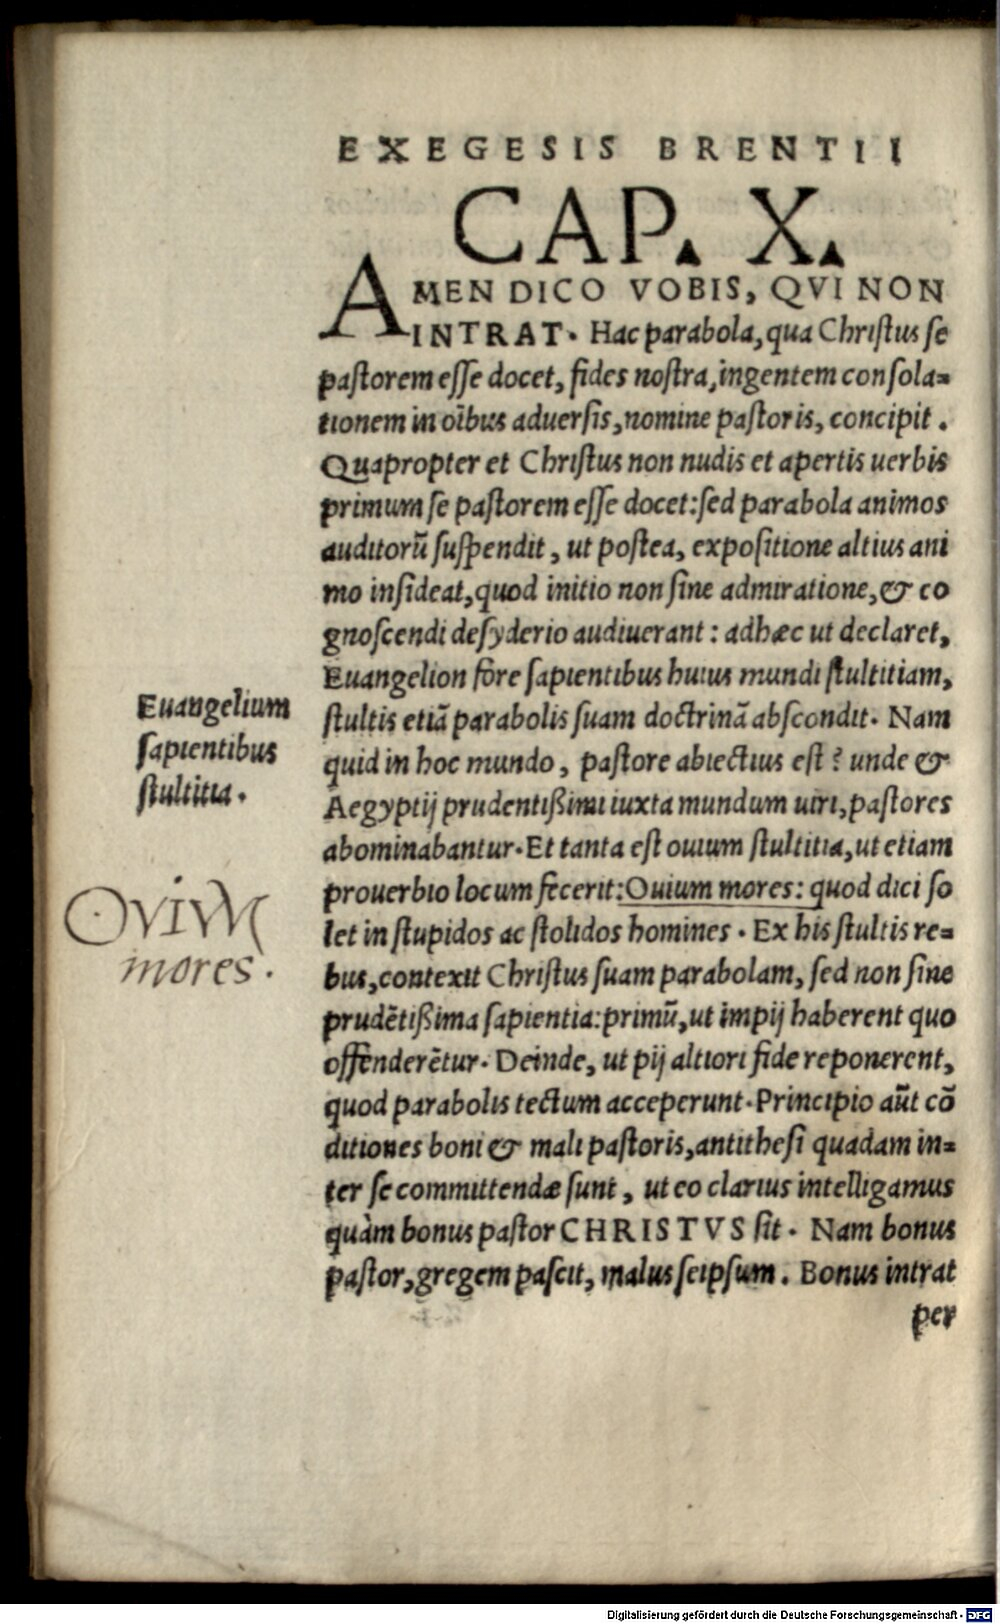 EXEGESIS BRENTII
CAP. X.
AMEN DICO VOBIS, QVI NON
INTRAT. Hac parabola, qua Christus se
pastorem esse docet, fides nostra, ingentem consola=
tionem in oībus aduersis, nomine pastoris, concipit.
Quapropter et Christus non nudis et apertis uerbis
primum se pastorem esse docet: sed parabola animos
auditorū suspendit, ut postea, expositione altius ani
mo insideat, quod initio non sine admiratione, & co
gnoscendi desyderio audiuerant: adhæc ut declaret,
Euangelion fore sapientibus huius mundi stultitiam,
stultis etiā parabolis suam doctrinā abscondit. Nam
quid in hoc mundo, pastore abiectius est? unde &
Aegyptij prudentißimi iuxta mundum uiri, pastores
abominabantur. Et tanta est ouium stultitia, ut etiam
prouerbio locum fecerit: Ouium mores: quod dici so
let in stupidos ac stolidos homines. Ex his stultis re=
bus, contexit Christus suam parabolam, sed non sine
prudētißima sapientia: primū, ut impij haberent quo
offenderētur. Deinde, ut pij altiori fide reponerent,
quod parabolis tectum acceperunt. Principio aūt cō
ditiones boni & mali pastoris, antithesi quadam in=
ter se committendæ sunt, ut eo clarius intelligamus
quàm bonus pastor CHRISTVS sit. Nam bonus
pastor, gregem pascit, malus seipsum. Bonus intrat
per
Euangelium
sapientibus
stultitia.
OVIVM
mores.
Digitalisierung gefördert durch die Deutsche Forschungsgemeinschaft - DFG